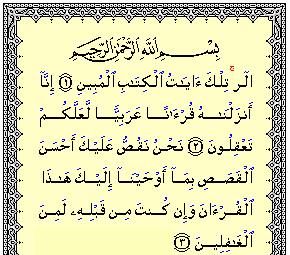 بِسْمِ ٱللَّهِ ٱلرَّحْمَـٰنِ ٱلرَّحِيمِ
الٓر ۚ تِلْكَ ءَايَـٰتُ ٱلْكِتَـٰبِ ٱلْمُبِينِ ١ إِنَّآ
أَنزَلْنَـٰهُ قُرْءَٰنًا عَرَبِيًّا لَّعَلَّكُمْ
تَعْقِلُونَ ٢ نَحْنُ نَقُصُّ عَلَيْكَ أَحْسَنَ
ٱلْقَصَصِ بِمَآ أَوْحَيْنَآ إِلَيْكَ هَـٰذَا
ٱلْقُرْءَانَ وَإِن كُنتَ مِن قَبْلِهِۦ لَمِنَ
ٱلْغَـٰفِلِينَ ٣